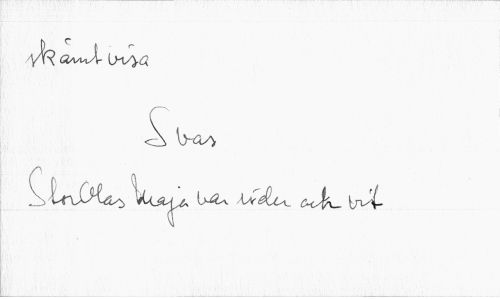 skämtvisa
Svar
StorOlas Maja var röder och vit